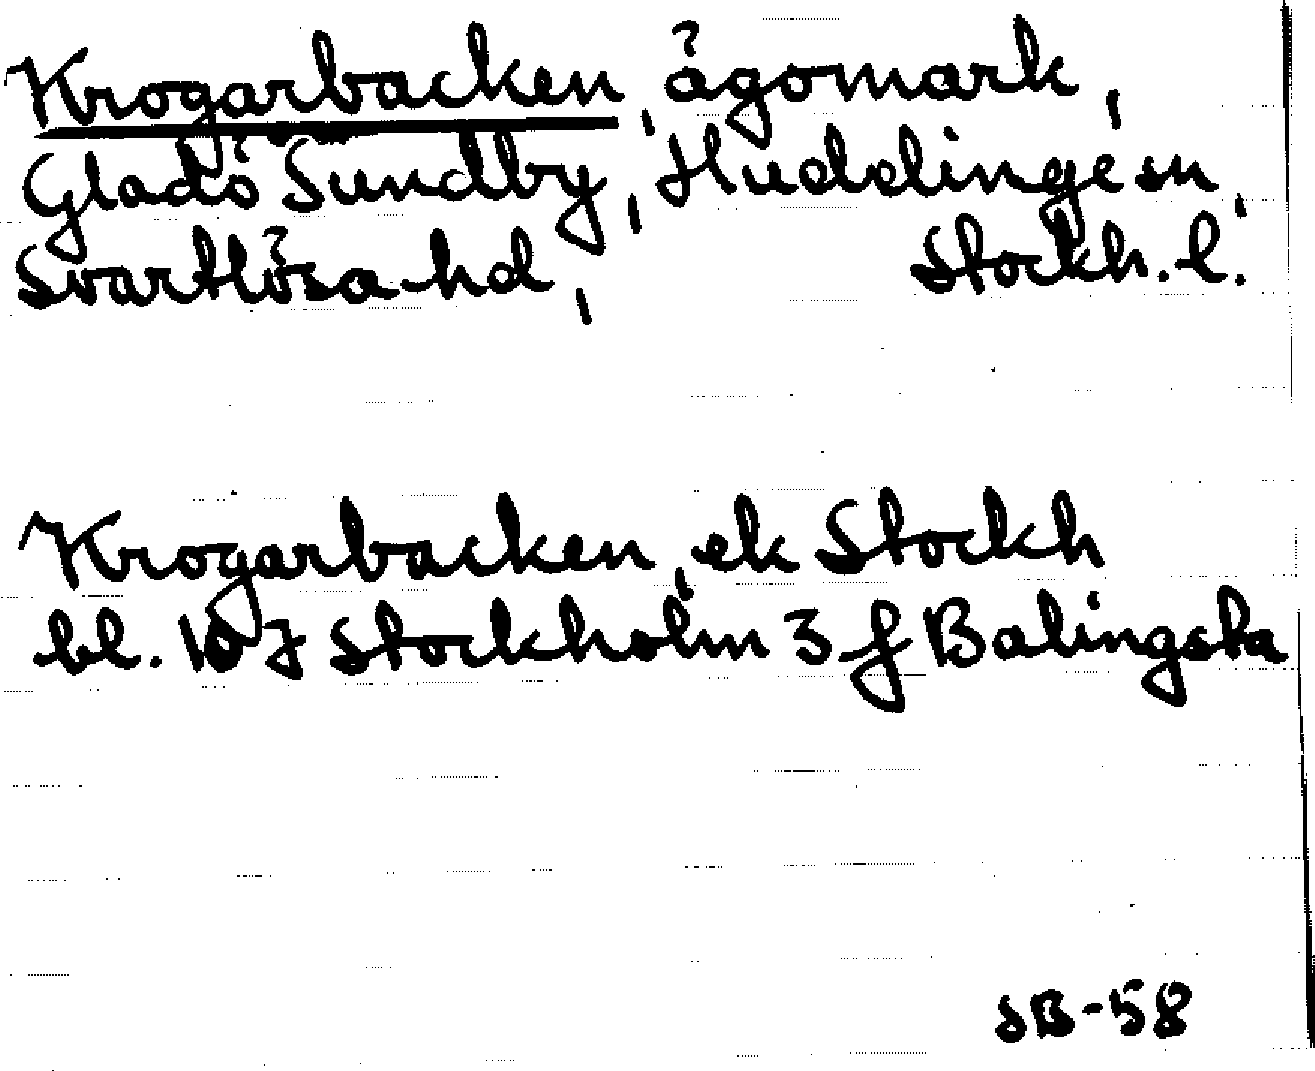 Krogarbacken, ägomark,
Gladö Sundby, Huddinge sn,
Svartlösa hd, Stockh. l.
Krogarbacken, ek Stockh
bl. 10 J Stockholm 3 f Balingsta
SB-58